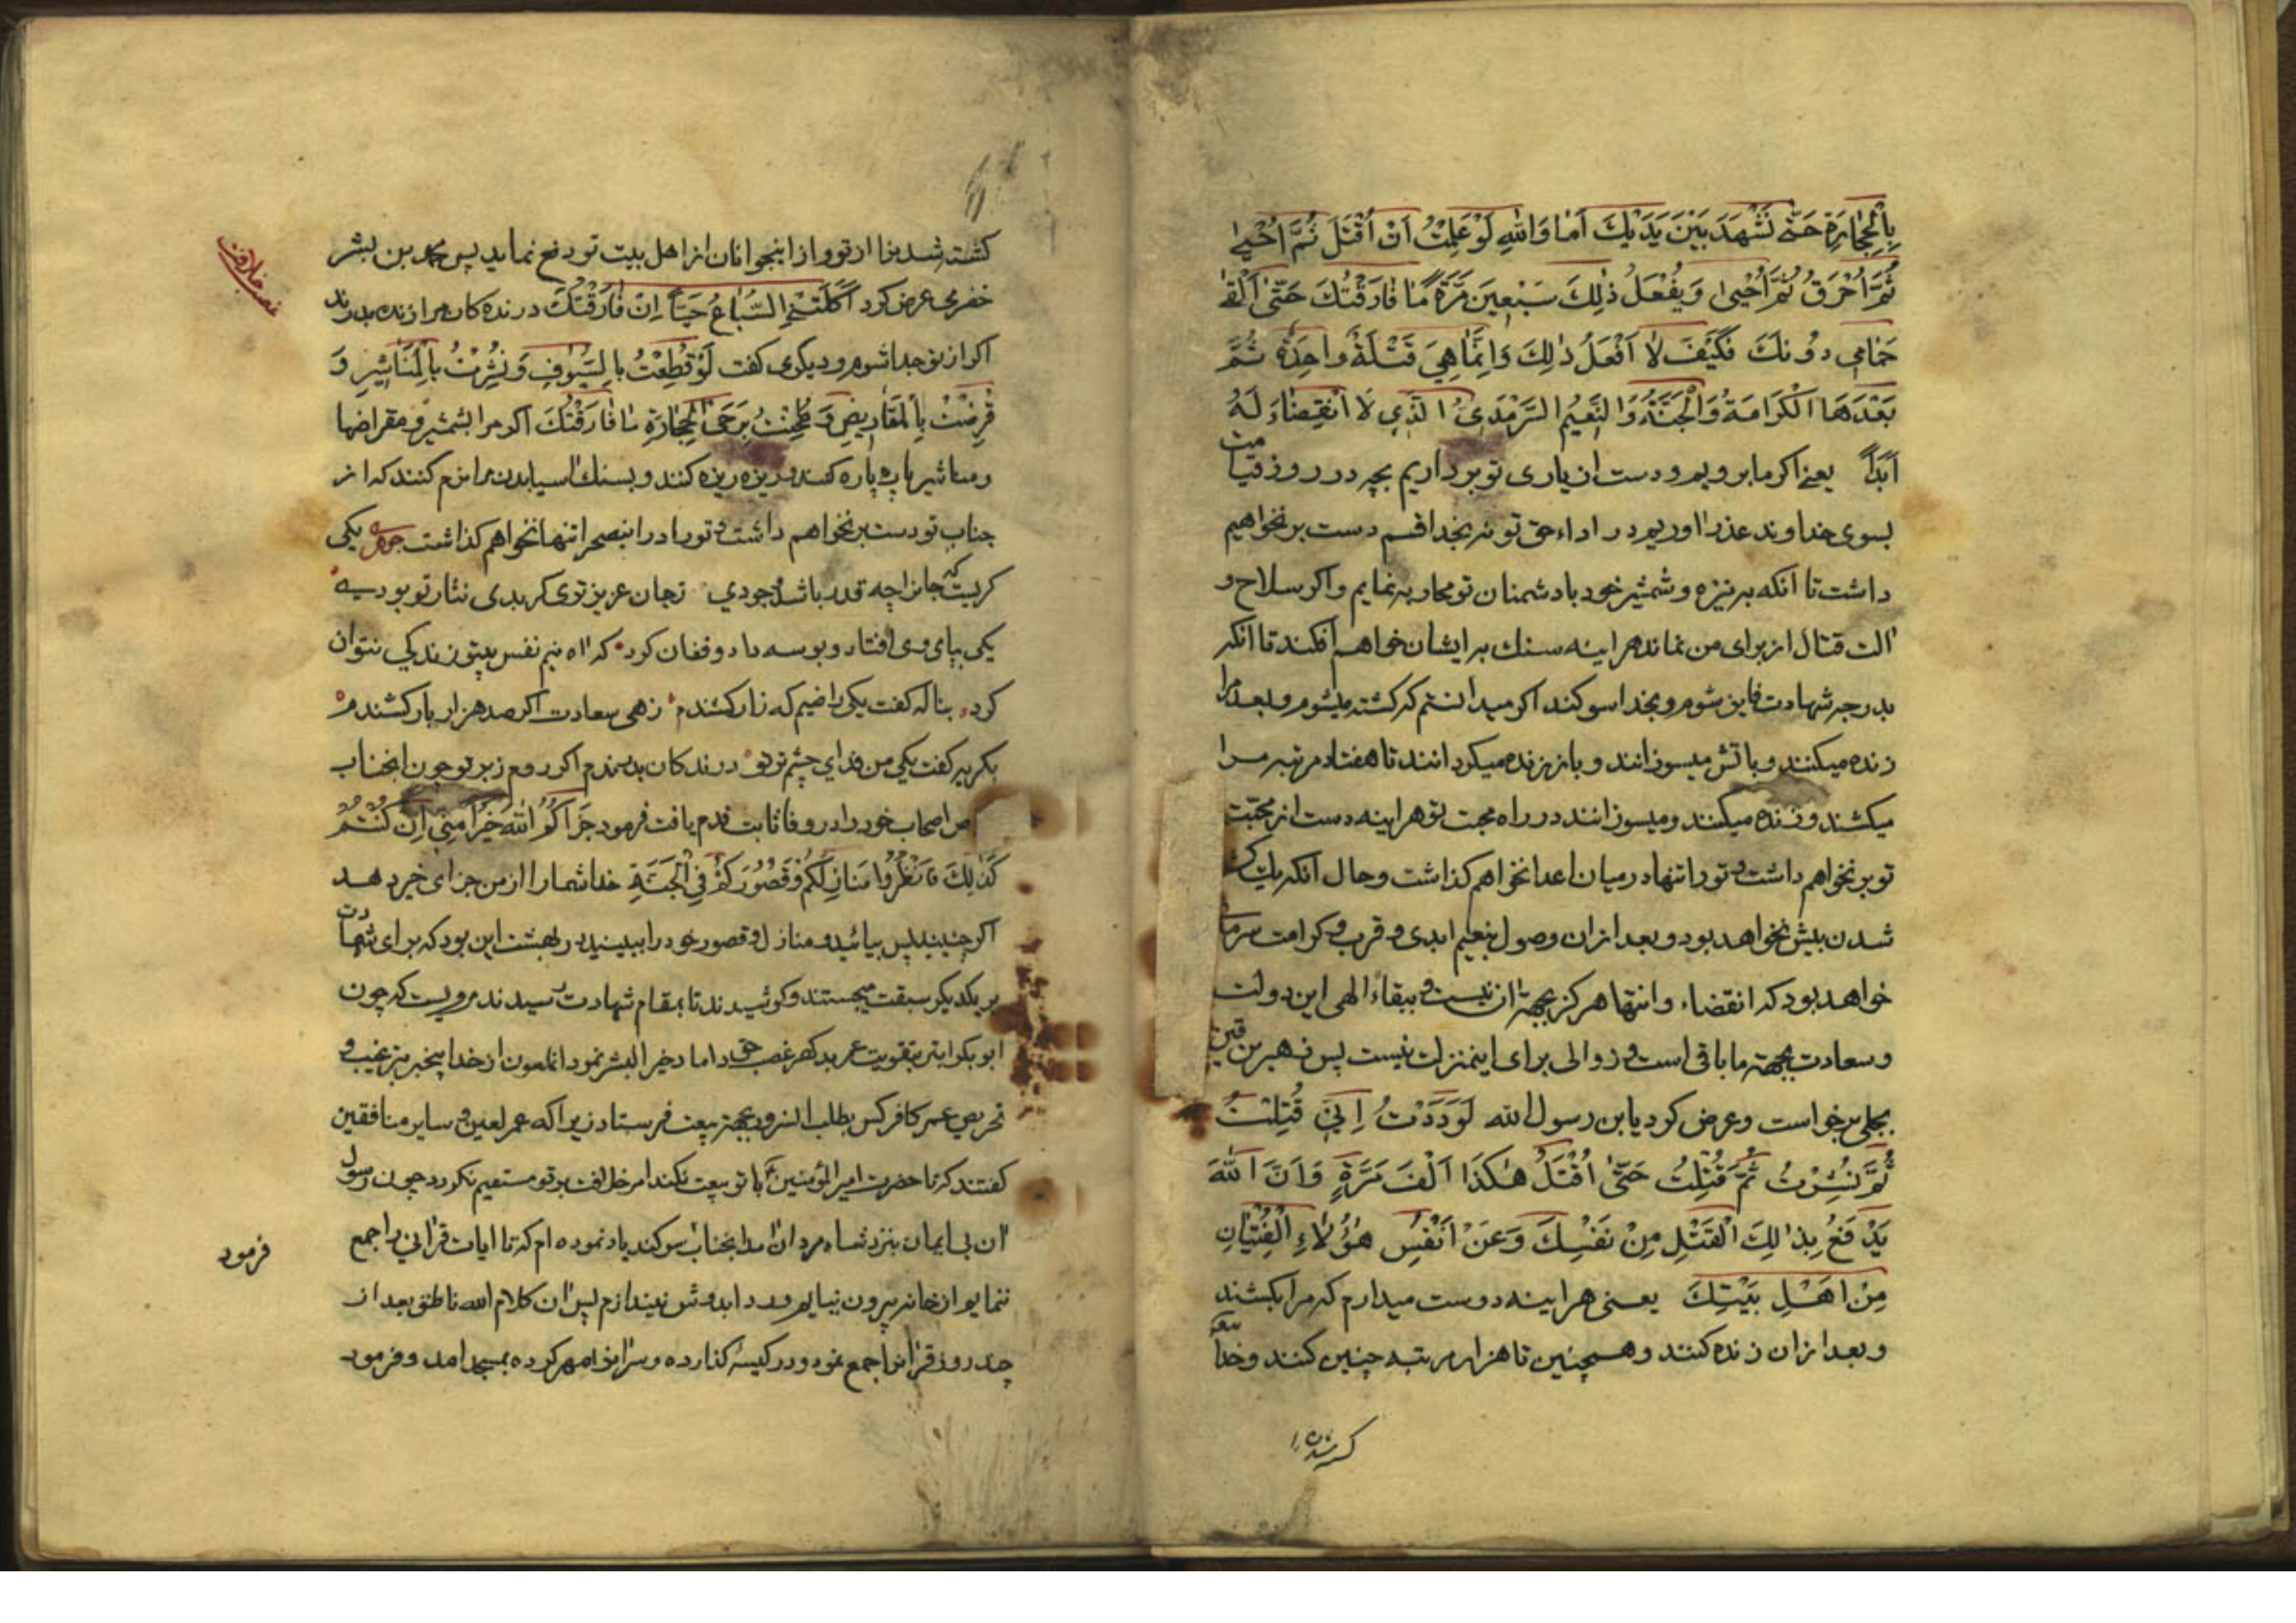 بِالْحِجٰارَةِ حَتّٰی نَشْهَدَ بَيْنَ يَدَيْكَ اَمٰا وَاللّٰهِ لَوْ عَلِمْتُ اَنْ اُقْتَلَ ثُمَّ اُحْيىٰ
ثُمَّ اُحْرَقُ ثُمَّ اُحْيىٰ وَيُفْعَلُ ذٰلِكَ سَبْعِينَ مَرَّةً مٰا فٰارَقْتُكَ حَتّٰى اَلْقٰى
حَمٰامِي دُونَكَ فَكَيْفَ لٰا اَفْعَلُ ذٰلِكَ وَاِنَّمٰا هِيَ قَتْلَةٌ وٰاحِدَةٌ ثُمَّ
بَعْدَهَا الْكَرٰامَةُ وَالْجَنَّةُ وَالنَّعِيمُ السَّرْمَدِيُّ الَّذِي لَا انْقِضٰاءَ لَهُ
اَبَدًا يعنی اكر ما برويم و دست از ياری تو برداريم بچه در روز قيامت
بسوی خداوند عذر اوريم در اداء حق تو نه بخدا قسم دست بر نخواهيم
داشت تا انكه به نيزه و شمشير خود با دشمنان تو محاربه نمايم و اكر سلاح و
الت قتال از برای من نماند هراينه سنك بر ايشان خواهم افكند تا انكه
بدرجه شهادت فايز شوم و بخدا سوكند اكر ميدانستم كه كشته ميشوم و بعد مرا
زنده ميكنند و باتش ميسوزانند و باز زنده ميكردانند تا هفتاد مرتبه مرا
ميكشند و زنده ميكنند و ميسوزانند در راه محبت تو هراينه دست از محبت
تو بر نخواهم داشت و تو را تنها در ميان اعدا نخواهم كذاشت و حال انكه يك كشته
شدن بيش نخواهد بود و بعد از ان وصول بنعيم ابدی و قرب و كرامت سرمد
خواهد بود كه انقضاء و انتها هركز بجهة ان نيست و ببقاء الهی اين دولت
و سعادت بجهة ما باقی است و زوالی برای اينمنزلت نيست پس زهير بن قين
بجلی برخواست و عرض كرد يابن رسول الله لَوَدَدْتُ اِنّي قُتِلْتُ
ثُمَّ نُشِرْتُ ثُمَّ قُتِلْتُ حَتّٰى اُقْتَلُ هٰكَذَا اَلْفَ مَرَّةٍ وَاَنَّ اللّٰهَ
يَدْفَعُ بِذٰلِكَ الْقَتْلِ مِنْ نَفْسِكَ وَعَنْ اَنْفُسِ هٰؤُلٰاءِ الْفِتْيٰانِ
مِنْ اَهْلِ بَيْتِكَ يعنی هراينه دوست ميدارم كه مرا بكشند
و بعد از ان زنده كنند و همچنين تا هزار مرتبه چنين كنند و خدا
غصب خلافت
كشته شدنرا از تو و از اينجوانان از اهل بيت تو دفع نمايد پس محمد بن بشر
خضرمی عرض كرد اَكَلَتْنِي السِّبٰاعُ حَيًّا اِنْ فٰارَقْتُكَ درندكان مرا زنده بدرند
اكر از تو جدا شوم و ديكری كفت لَوْ قُطِعْتُ بِالسُّيُوفِ وَنُشِرْتُ بِالْمَنٰاشِيرِ وَ
قُرِضْتُ بِالْمَقٰارِيضِ وَطُحِنْتُ بِرَحَى الْحِجٰارَةِ مٰا فٰارَقْتُكَ اكر مرا بشمشير و مقراضها
و مناشير پاره پاره كنند و ريزه ريزه كنند و بسنك اسيا بدنمرا نرم كنند كه از
جناب تو دست بر نخواهم داشت و تو را در اينصحرا تنها نخواهم كذاشت يكی
كريست كه جانرا چه قدر باشد و جودي ز جان عزيز تری كر بدی نثار تو بودی
يكی بپای وی افتاد و بوسه داد و فغان كرد كه اه نيم نفس بيتو زندكی نتوان
كرد بناله كفت يكی راضيم كه زار كشندم زهی سعادت اكر صد هزار بار كشندم
بكريه كفت يكی من فدای چشم تر تو درندكان بدرندم اكر روم ز بر تو چون انجناب
اصحاب خود را در وفا ثابت قدم يافت فرمود جَزٰاكُمُ اللّٰهُ خَيْرًا مِنّي اِنْ كُنْتُمْ
كَذٰلِكَ فٰانْظُرُوا مَنٰازِلَكُمْ وَقُصُورَكُمْ فِي الْجَنَّةِ خدا شما را از من جزای خير دهد
اكر چنينيد پس بيائيد و منازل و قصور خود را ببينيد در بهشت اين بود كه برای شهادت
بر يكديكر سبقت ميجستند و كوشيدند تا بمقام شهادت رسيدند مرويست كه چون
ابو بكر ابتر بتقويت عمر بدكهر غصب حق داماد خير البشر نمود انملعون از خدا بيخبر بترغيب و
تحريص عمر كافر كس بطلب انسرور بجهة بيعت فرستاد زيرا كه عمر لعين و ساير منافقين
كفتند كه تا حضرت امير المؤمنين با تو بيعت نكند امر خلافت بر تو مستقيم نكردد چون رسول
ان بی ايمان بنزد شاه مردان امد انجناب سوكند ياد نموده ام كه تا ايات قرانی را جمع
ننمايم از خانه بيرون نيايم و ردا بدوش نيندازم پس ان كلام الله ناطق بعد از
چند روز قرانرا جمع نمود و در كيسه كذارده و سر انرا مهر كرده بمسجد امد و فرمود
فرمود